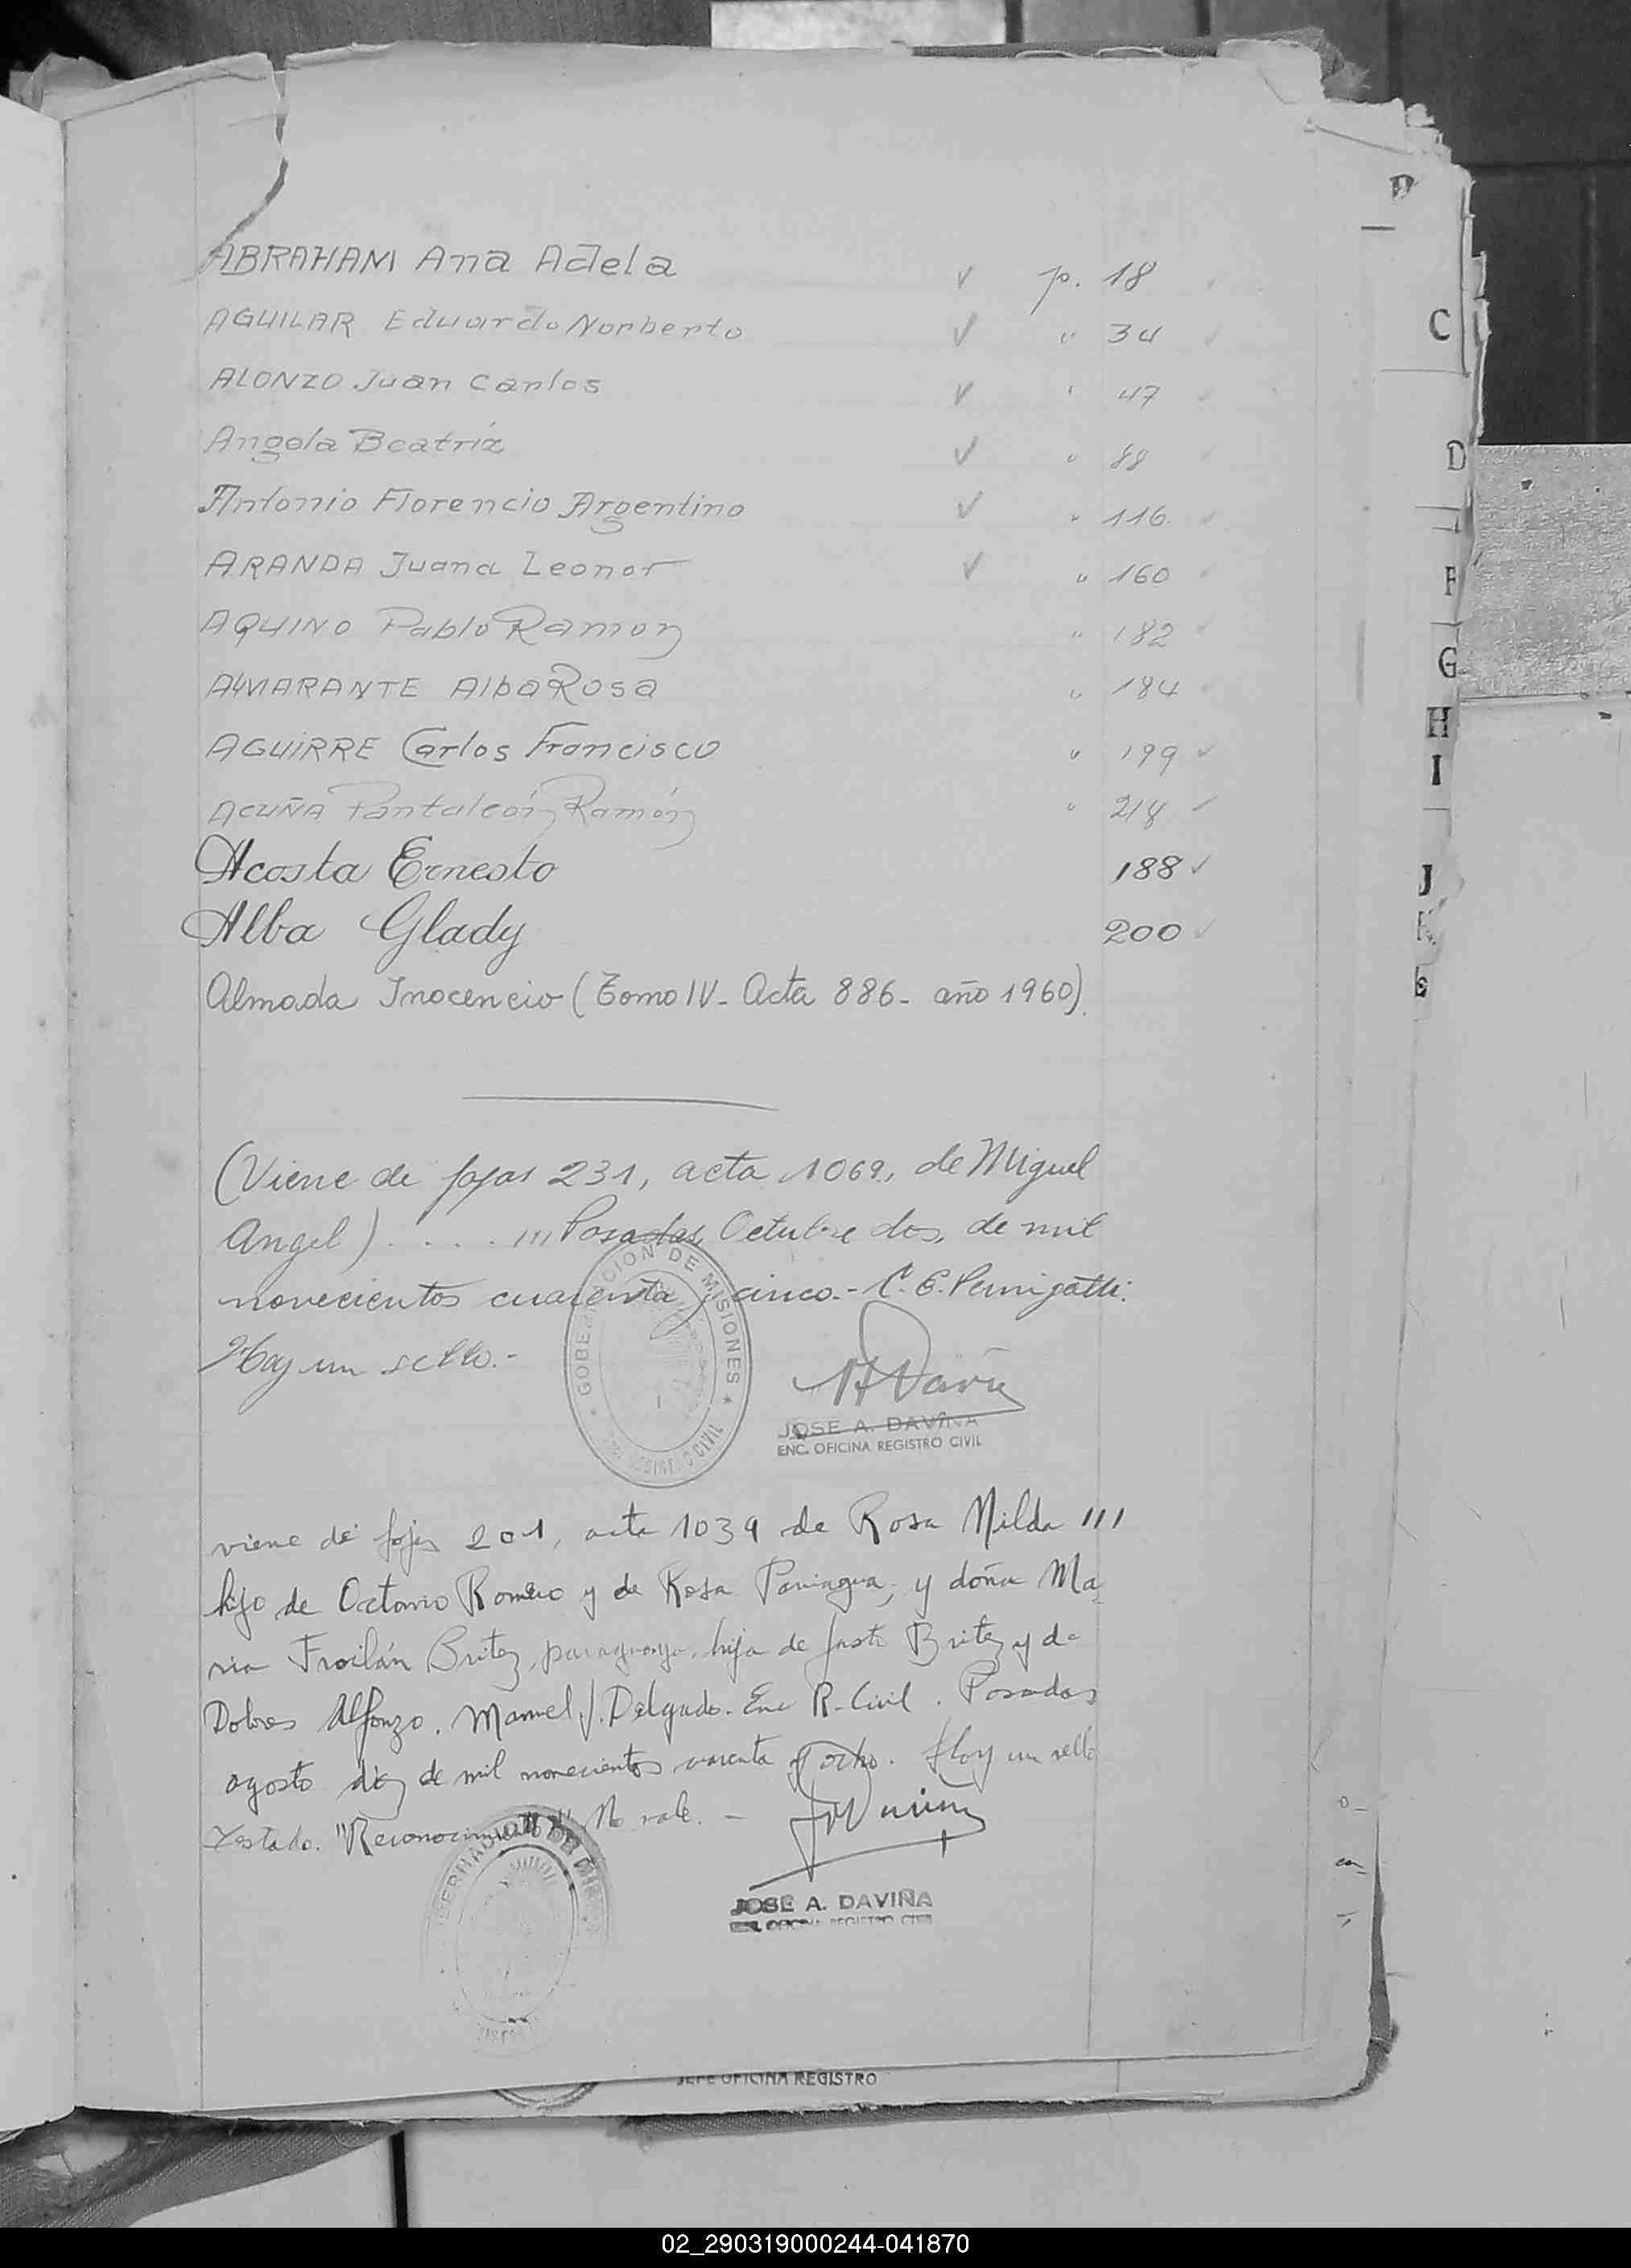 ABRAHAM Ana Adela p. 18
AGUILAR Eduardo Norberto " 34
ALONZO Juan Carlos " 47
Angela Beatríz " 88
Antonio Florencio Argentino " 116
ARANDA Juana Leonor " 160
AQUINO Pablo Ramon " 182
AMARANTE Alba Rosa " 184
AGUIRRE Carlos Francisco " 199
ACUÑA Pantaleón Ramón " 218
Acosta Ernesto 188
Alba Glady 200
Almada Inocencio (Tomo IV- Acta 886- año 1960)
(Viene de fojas 231, acta 1069, de Miguel
Angel) . . . . ''' Posadas, Octubre dos, de mil
novecientos cuarenta y cinco.- C. E.
Hay un sello.-
GOBERNACION DE MISIONES
REGISTRO CIVIL
JOSE A. DAVIÑA
ENC. OFICINA REGISTRO CIVIL
viene de fojas 201, acta 1039 de Rosa Nilda '''
hijo de Octavio Romero y de Rosa Paniagua, y doña Ma-
ria Froilán Britez, paraguaya, hija de Justo Britez y de
Dolores Alfonzo. Manuel J. Delgado. Enc R. Civil. Posadas
agosto diez de mil novecientos cuarenta y ocho. Hay un sello
Testado. "Reconocimiento" No vale. -
JOSE A. DAVIÑA
ENC. OFICINA REGISTRO CIVIL
JEFE OFICINA REGISTRO
C
D
F
G
H
I
J
K
02_290319000244-041870